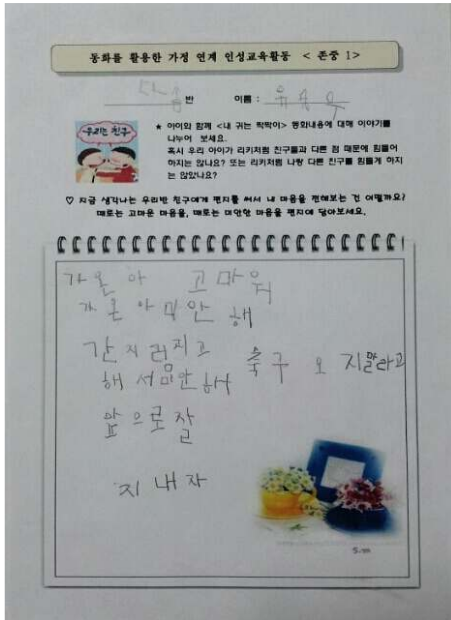 동화를 활용한 가정 연계 인성교육활동 < 존중 1>
반 이름 :
우리는 친구
★ 아이와 함께 <내 귀는 짝짝이> 동화내용에 대해 이야기를
나누어 보세요.
혹시 우리 아이가 리키처럼 친구들과 다른 점 때문에 힘들어
하지는 않나요? 또는 리키처럼 나랑 다른 친구를 힘들게 하지
는 않았나요?
♡ 지금 생각나는 우리반 친구에게 편지를 써서 내 마음을 전해보는 건 어떨까요?
때로는 고마운 마음을, 때로는 미안한 마음을 편지에 담아보세요.
가온아 고마워
가온아 미안해
축구 오지말라고
해서미안해
앞으로잘
지내자